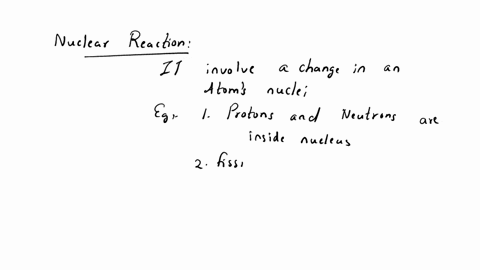 Nuclear Reaction:
It involve a change in an
Atom's nuclei
Eg:- 1. Protons and Neutrons are
inside nucleus
2. fiss